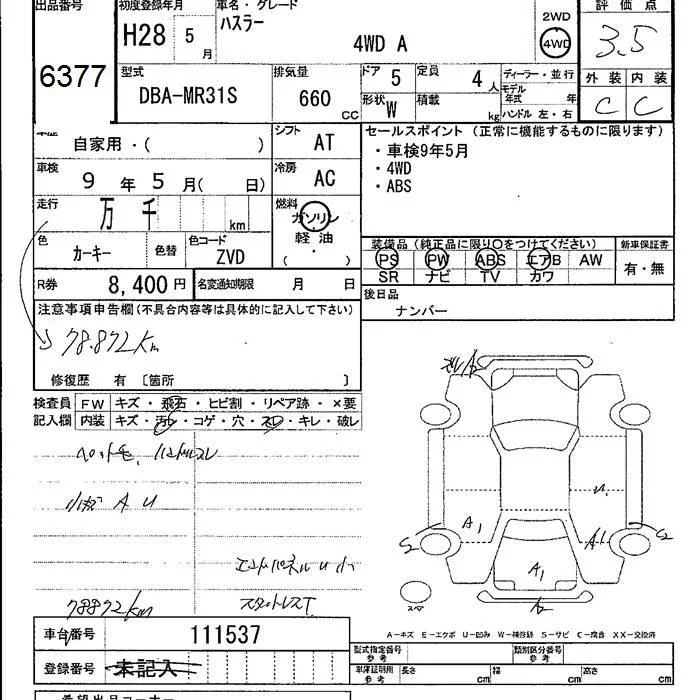 出品番号 初度登録年月 車名・グレード 評価点
H28 5月 ハスラー 4WD A 2WD 4WD 3.5
6377
型式 排気量 ドア 5 定員 4人 ディーラー・並行 外装 内装
DBA-MR31S 660cc 形状 W 積載 kg モデル年式 年 ハンドル 左・右 C C
車歴 自家用・( ) シフト AT
セールスポイント(正常に機能するものに限ります)
・車検9年5月
・4WD
・ABS
車検 9年5月( 日) 冷房 AC
走行 万千 km 燃料 ガソリン 軽油 ( ・ )
色 カーキー 色替 色コード ZVD
装備品(純正品に限り○をつけてください) 新車保証書
PS PW ABS エアB AW 有・無
SR ナビ TV カワ
R券 8,400円 名変通知期限 月 日
後日品 ナンバー
注意事項申告欄(不具合内容等は具体的に記入して下さい)
78.872Km
修復歴 有〔箇所 〕
検査員 FW キズ・飛石・ヒビ割・リペア跡・×要
記入欄 内装 キズ・汚レ・コゲ・穴・スレ・キレ・破レ
ペット毛、ハンドルスレ
小キズ A U
エンドパネル U
78872km スタットレスT
A2
U.
A1
A1
S2
S2
A1
A2
スペ
A-キズ E-エクボ U-凹み W-補修跡 S-サビ C-腐食 XX-交換済
車台番号 111537
型式指定番号 参考 類別区分番号 参考
登録番号 未記入
車庫証明用 参考 長さ cm 幅 cm 高さ cm
希望出品コーナー